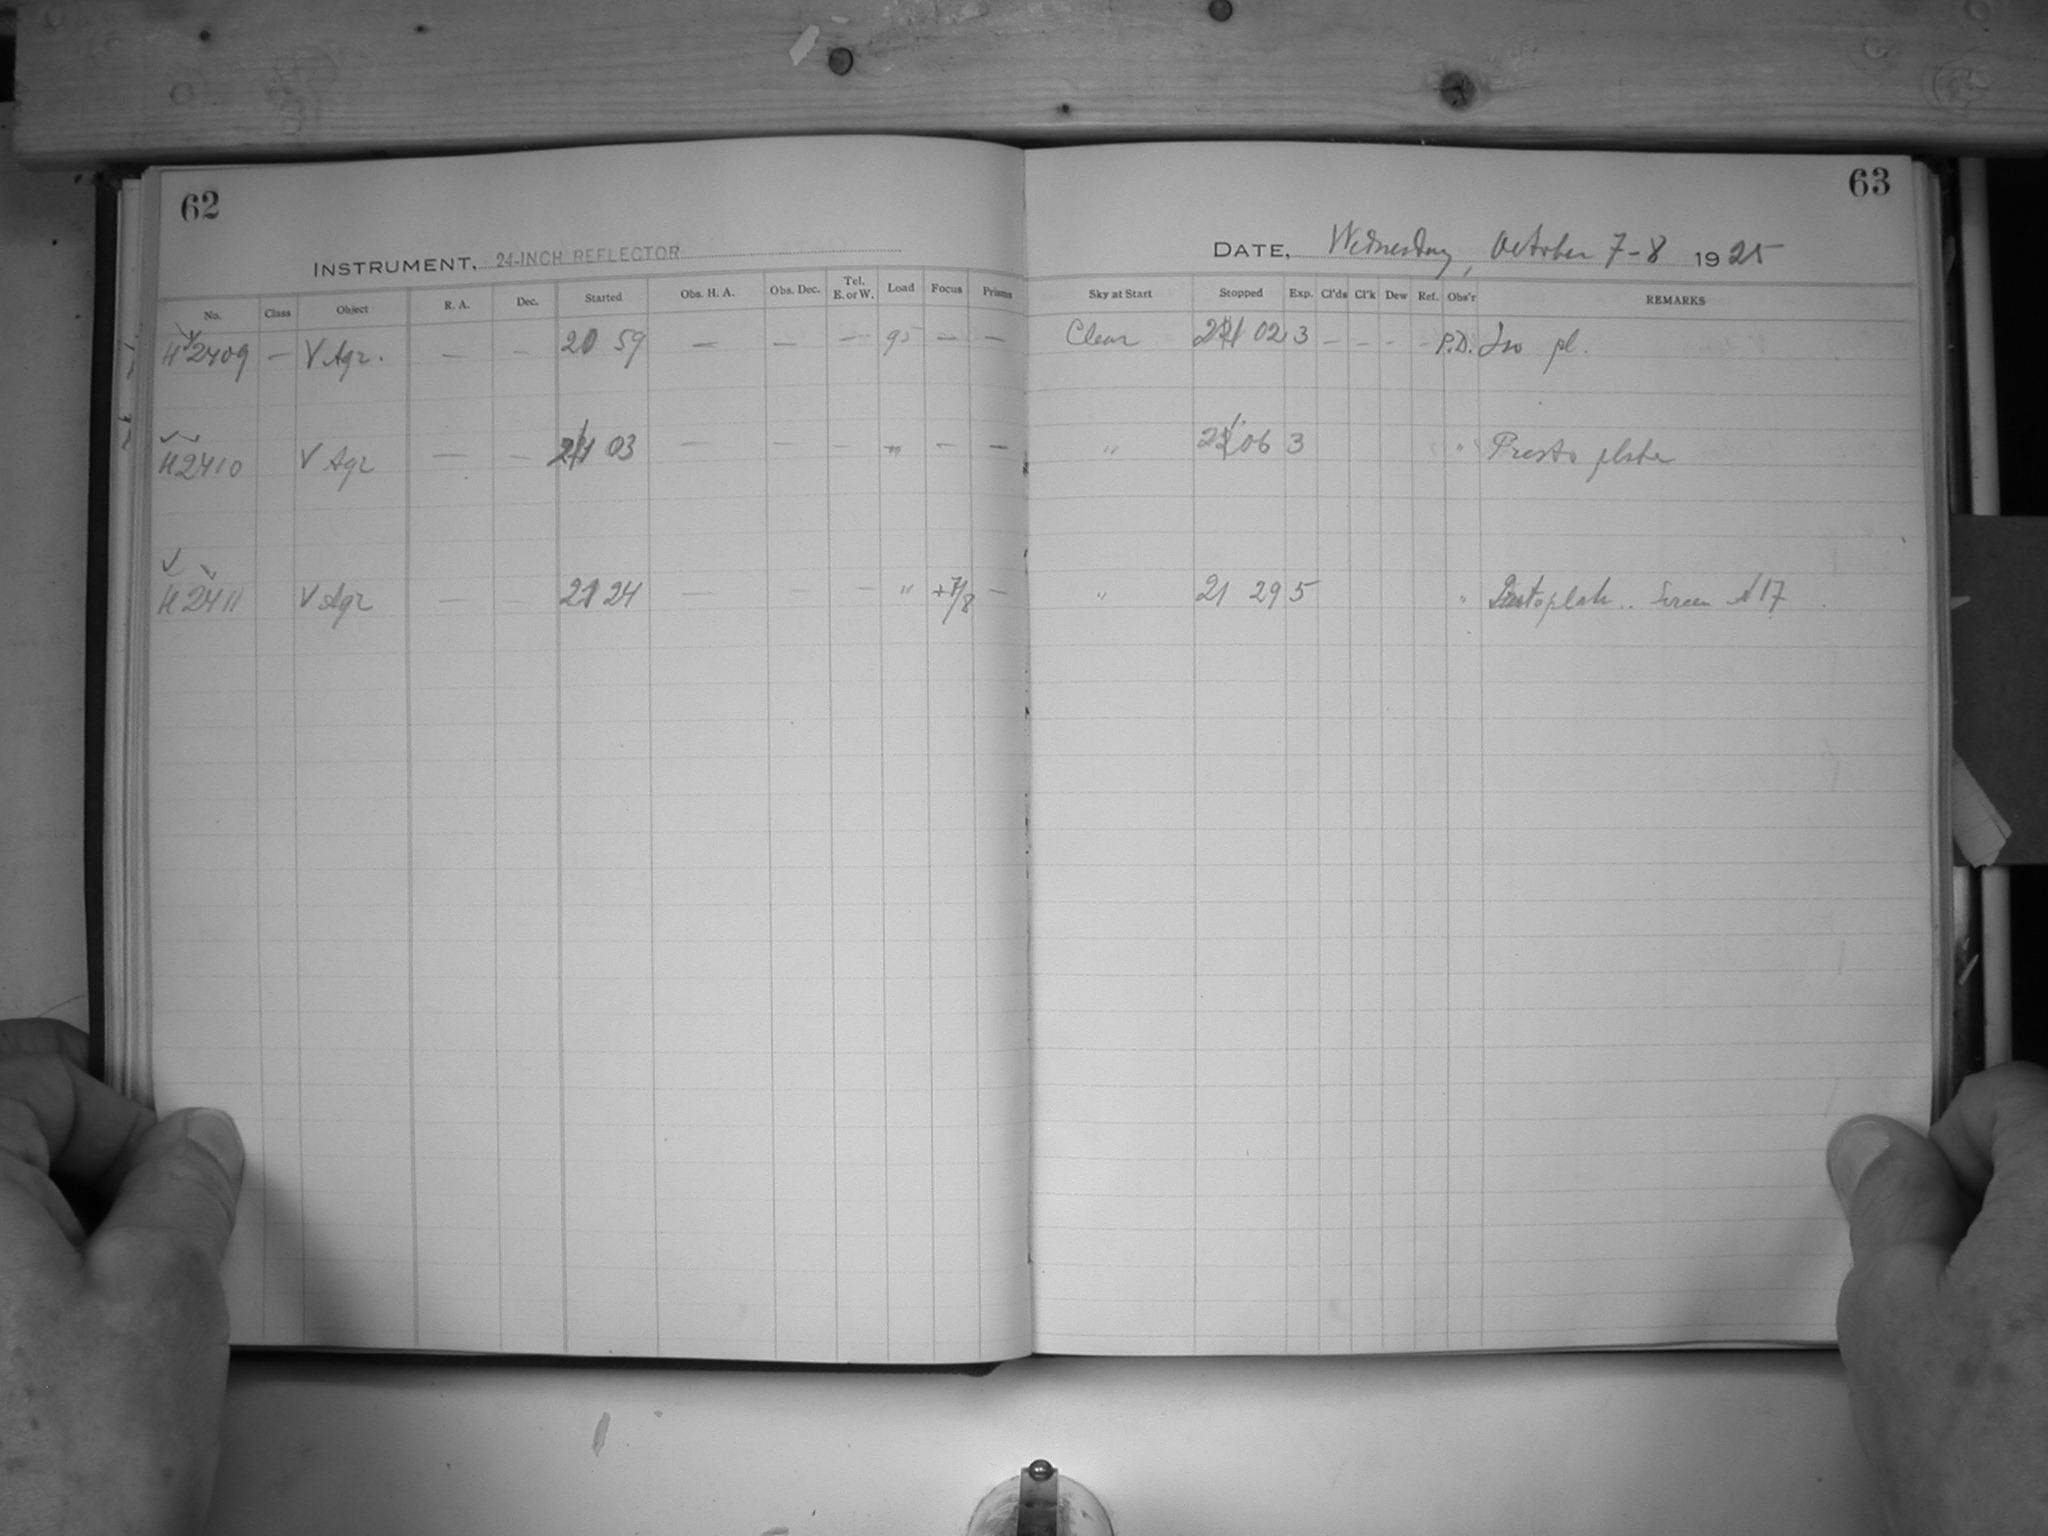 62
INSTRUMENT, 24-INCH REFLECTOR
No. Class Object R. A. Dec. Started Obs. H. A. Obs. Dec. Tel. E. or W. Load Focus Prisms
H2409 — V Aqr. — — 20 59 — — — 95 — —
H2410 V Aqr — — 21 03 — — — " — —
H2411 V Aqr — — 21 24 — — — " +7/8 —
63
DATE, Wednesday, October 7-8 1925
Sky at Start Stopped Exp. Cl'ds Cl'k Dew Ref. Obs'r REMARKS
Clear 21 02 3 — — - - P.D. Iso pl.
" 21 06 3 " Presto plate
" 21 29 5 " Presto plate .. Screen A17